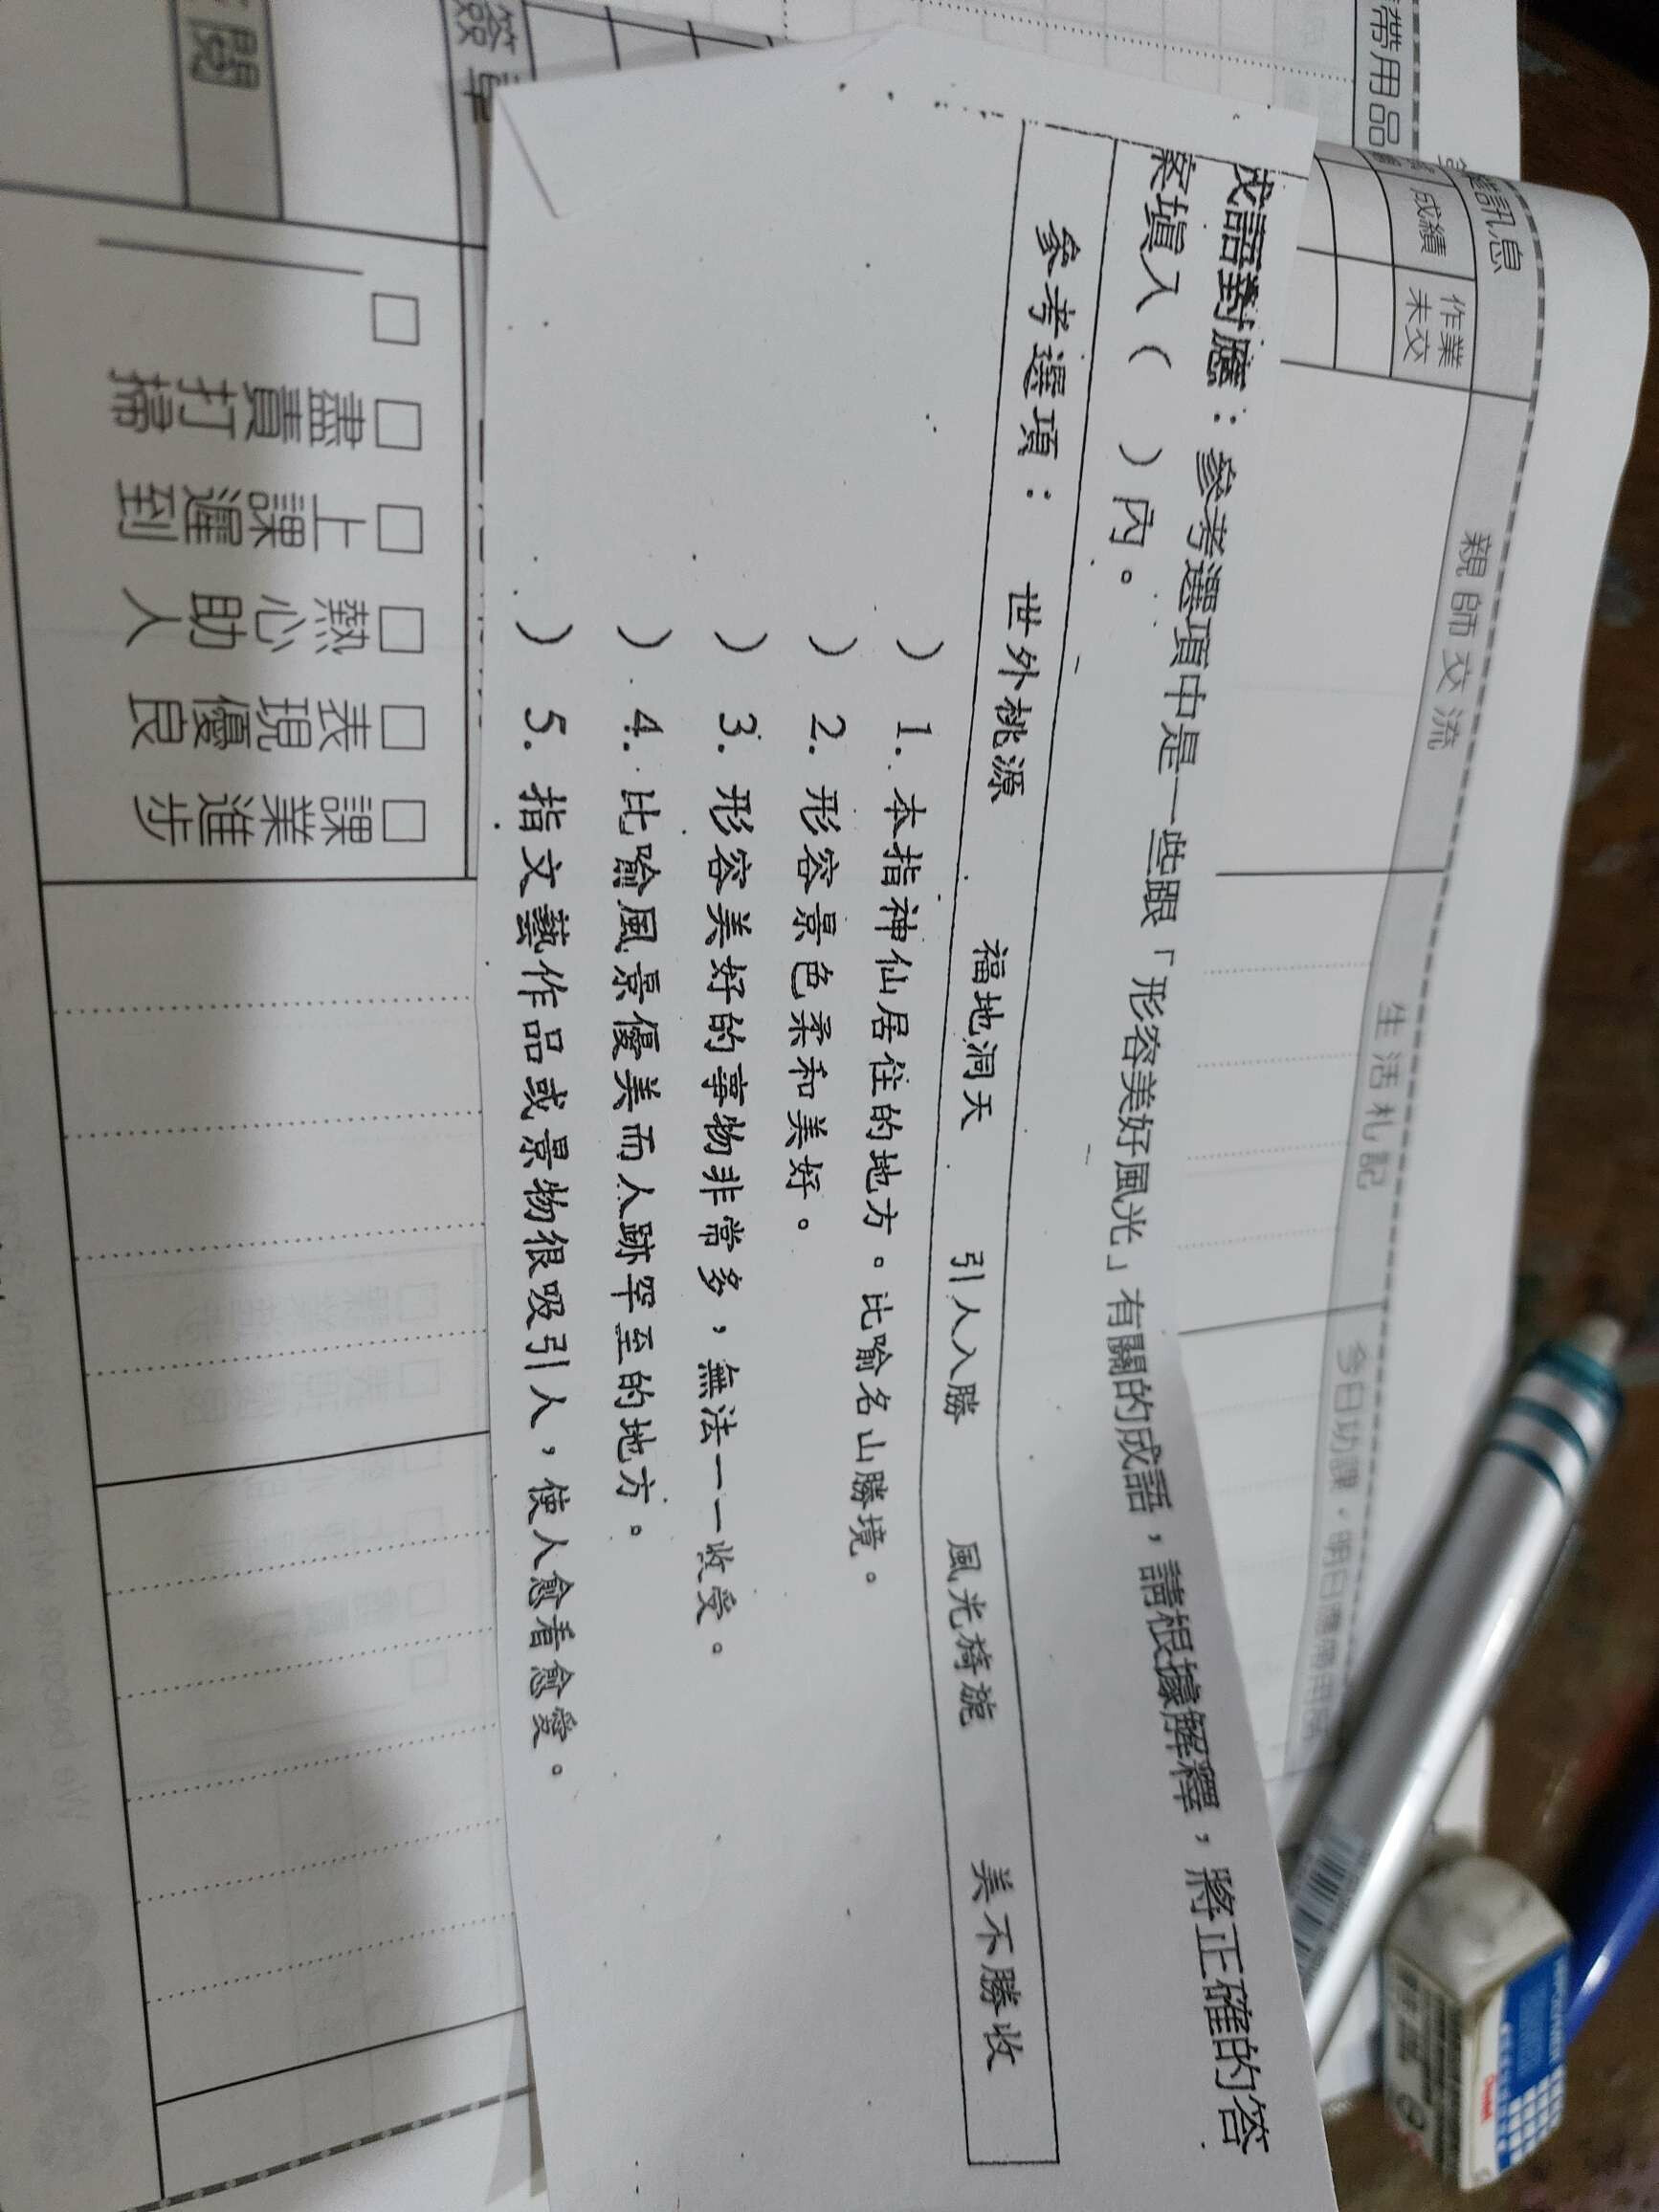 成語對應：參考選項中是一些跟「形容美好風光」有關的成語，請根據解釋，將正確的答
案填入（　　）內。
參考選項：　世外桃源　福地洞天　引人入勝　風光旖旎　美不勝收
）1. 本指神仙居住的地方。比喻名山勝境。
）2. 形容景色柔和美好。
）3. 形容美好的事物非常多，無法一一收受。
）4. 比喻風景優美而人跡罕至的地方。
）5. 指文藝作品或景物很吸引人，使人愈看愈愛。
帶用品
訊息
成績
作業未交
親師交流
生活札記
今日功課．明日攜帶用品
閱
簽章
□
□盡責打掃
□上課遲到
□熱心助人
□表現優良
□課業進步
Pentel